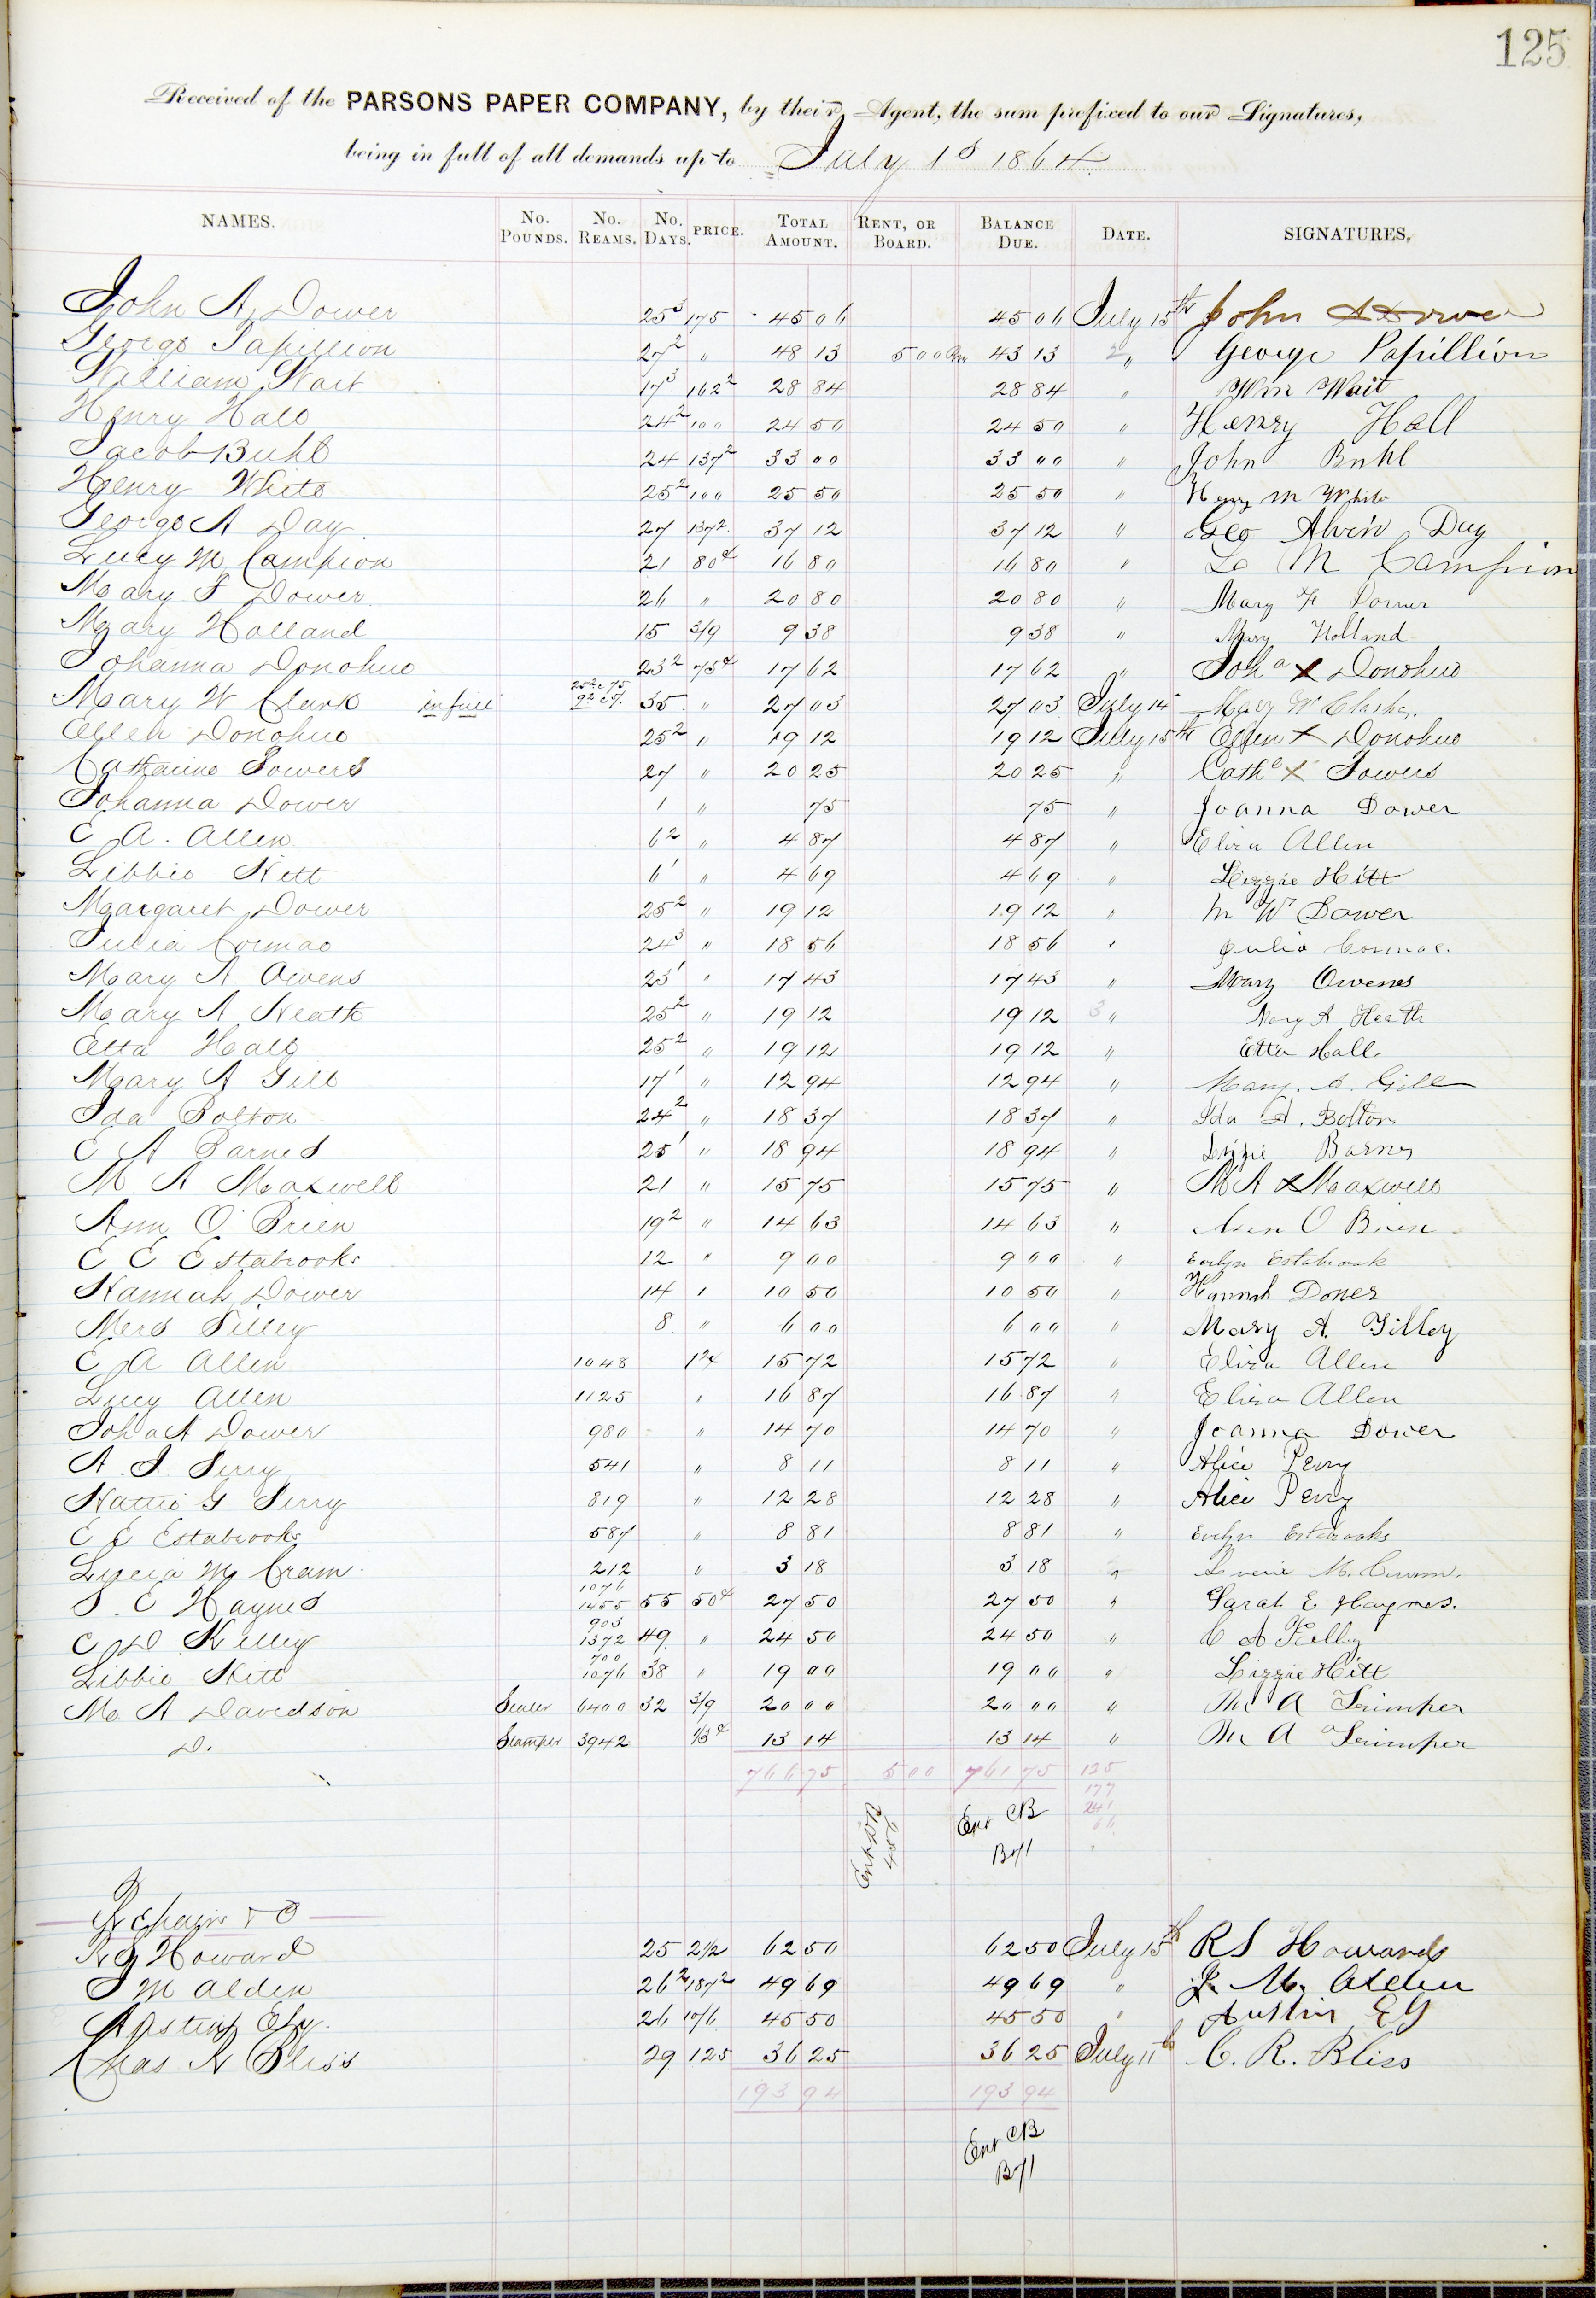 125
Received of the PARSONS PAPER COMPANY, by their Agent, the sum prefixed to our Signatures,
being in full of all demands up to July 1s 1864
NAMES. No. POUNDS. No. REAMS. No. DAYS. PRICE. TOTAL AMOUNT. RENT, OR BOARD. BALANCE DUE. DATE. SIGNATURES,
John A Dower 25 3 175 45 06 45 06 July 15th John A Dower
George Papillion 27 2 " 48 13 5 00 43 13 " George Papillion
William Wait 17 3 162 2 28 84 28 84 " Wm Wait
Henry Hall 24 2 100 24 50 24 50 " Henry Hall
Jacob Buhl 24 137 2 33 00 33 00 " John Buhl
Henry White 25 2 100 25 50 25 50 " Henry M White
George A Day 27 137 2 37 12 37 12 " Geo Alvin Day
Lucy M Campion 21 80 ¢ 16 80 16 80 " L M Campion
Mary F Dower 26 " 20 80 20 80 " Mary F Dower
Mary Holland 15 3/9 9 38 9 38 " Mary Holland
Johanna Donohue 23 2 75 ¢ 17 62 17 62 " Joh a x Donohue
Mary W Clark in full 25 2 c 75 9 2 c 87 35 " 27 03 27 03 July 14 Mary W Clark
Ellen Donohue 25 2 " 19 12 19 12 July 15th Ellen x Donohue
Catharine Powers 27 " 20 25 20 25 " Cath e x Powers
Johanna Dower 1 " 75 75 " Joanna Dower
E A. Allen 6 2 " 4 87 4 87 " Eliza Allen
Libbie Hitt 6 1 " 4 69 4 69 " Lizzie Hitt
Margaret Dower 25 2 " 19 12 19 12 " M W Dower
Julia Cormac 24 3 " 18 56 18 56 " Julia Cormac.
Mary A Owens 23 1 " 17 43 17 43 " Mary Owenes
Mary A Heath 25 2 " 19 12 19 12 " Mary A Heath
Etta Hall 25 2 " 19 12 19 12 " Etta Hall
Mary A Gill 17 1 " 12 94 12 94 " Mary. A. Gill
Ida Bolton 24 2 " 18 37 18 37 " Ida A. Bolton
E A Barnes 25 1 " 18 94 18 94 " Lizzie Barnes
M A Maxwell 21 " 15 75 15 75 " M A x Maxwell
Ann O'Brien 19 2 " 14 63 14 63 " Ann O Brien
E E Estabrooks 12 " 9 00 9 00 " Evelyn Estabrook
Hannah Dower 14 " 10 50 10 50 " Hannah Dower
Mers Tilley 8 " 6 00 6 00 " Mary A. Tilley
E A Allen 1048 1 2 ¢ 15 72 15 72 " Eliza Allen
Lucy Allen 1125 " 16 87 16 87 " Eliza Allen
Joh a A Dower 980 " 14 70 14 70 " Joanna Dower
A. J. Perry 541 " 8 11 8 11 " Alice Perry
Hattie G Perry 819 " 12 28 12 28 " Alice Perry
E E Estabrooks 587 " 8 81 8 81 " Evelyn Estabrooks
Lucia M Cram 212 " 3 18 3 18 " M. Cram.
S. E Haynes 1076 1455 55 50 ¢ 27 50 27 50 " Sarah E Haynes.
C D Kelley 903 1372 49 " 24 50 24 50 " C A Kelley
Libbie Hitt 700 1076 38 " 19 00 19 00 " Lizzie Hitt
M A Davidson Sealer 6400 32 3/9 20 00 20 00 " M A
D. Stamper 3942 1/3 ¢ 13 14 13 14 " M A
766 75 5 00 761 75 125
177
241
66
Ent DB 456
Ent CB
B71
Repairs & O
R S Howard 25 2 1/2 62 50 62 50 July 15th RS Howard
J M Alden 26 2 187 2 49 69 49 69 " J. M. Alden
Austin Ely. 26 10/6 45 50 45 50 " Austin Ely
Chas R Bliss 29 125 36 25 36 25 July 11th C. R. Bliss
193 94 193 94
Ent CB
B71